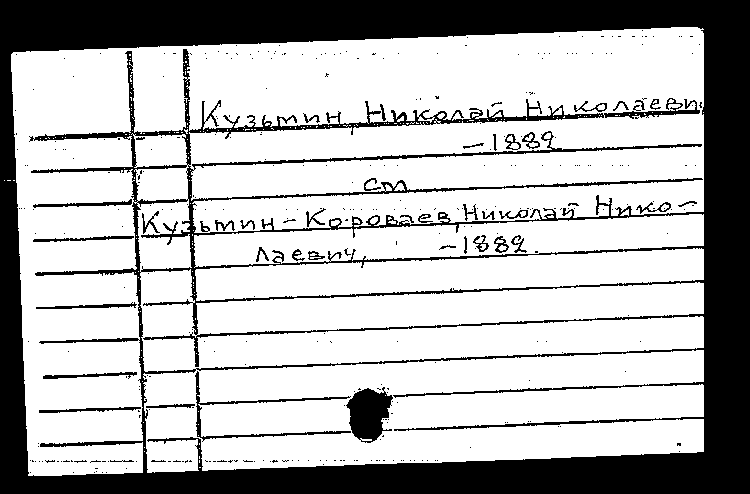 Кузьмин, Николай Николаеви
-1882
см
Кузьмин-Короваев, Николай Нико-
лаевич, -1882.